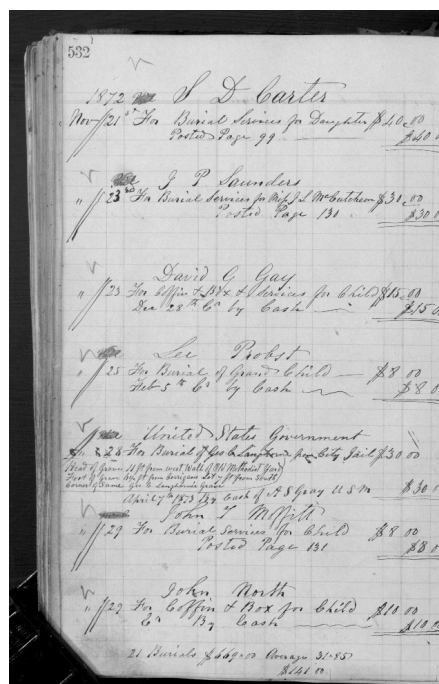 532
1872 S D Carter
Nov 21st For Burial Services for Daughter $40.00
Posted Page 99 — $40.0
J P Saunders
" 23rd For Burial Services for J L McCutcheon $30.00
Posted Page 130 $30.0
David G Gay
" 23 For Coffin & Box & Services for Child $15.00
Dec 28th Cr by Cash — $15.0
Lee Probst
" 25 For Burial of Grand Child — $8.00
Feb 5th Cr by Cash — $8.0
United States Government
" 28 For Burial of Geo from City Jail $30.00
Head of Grave 11 ft from west Wall of Old Methodist Yard
Foot of Grave ft from Lot 7 ft from South
Corner of Same Geo Grave
April 7th 1873 By Cash of A S Gray U S M $30.0
John T Moffitt
" 29 For Burial Services for Child $8.00
Posted Page 131 $8.0
John North
" 29 For Coffin & Box for Child $10.00
Cr By Cash — $10.0
21 Burials $669.00 Average 31.85
$141.00